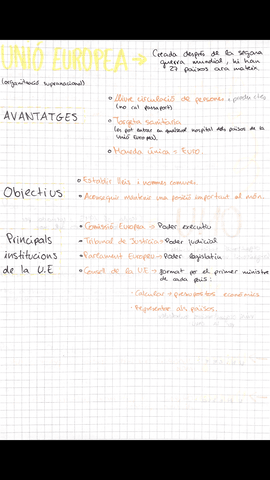 UNIÓ EUROPEA → Creada després de la segona
guerra mundial, hi han
27 països ara mateix.
(organització supranacional)
AVANTATGES
Lliure circulació de persones + productes
(no cal passaport)
Targeta sanitaria
(es pot entrar en qualsevol hospital dels països de la
Unió Europea).
Moneda única → Euro.
Objectius
Establir lleis i normes comuns.
Aconseguir mantenir una posició important al món.
Principals
institucions
de la U.E
Comissió Europea → Poder executiu
Tribunal de Justícia → Poder Judicial
Parlament Europeu → Poder legislatiu
Consell de la U.E → format per el primer ministre
de cada país:
· Calcular pressupostos econòmics.
· Representar als països.